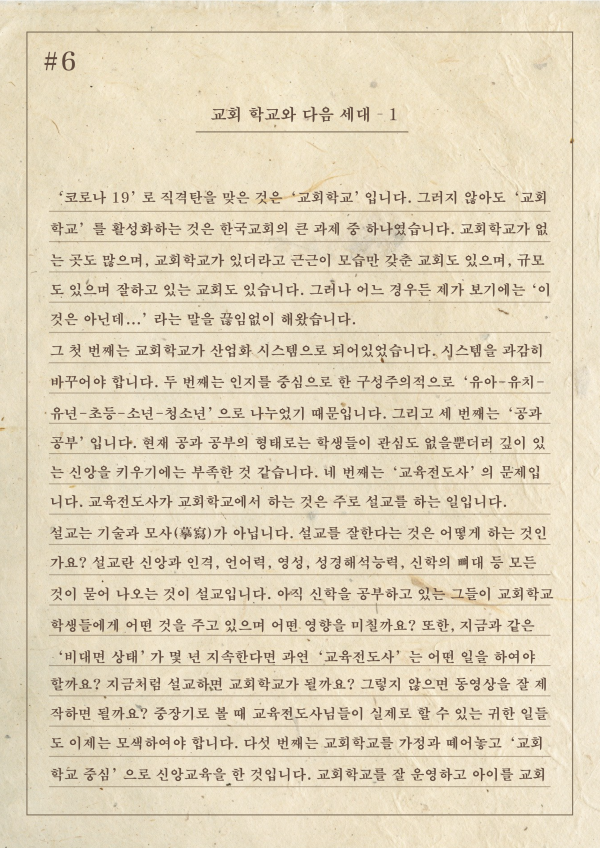 #6
교회 학교와 다음 세대 - 1
‘코로나 19’ 로 직격탄을 맞은 것은 ‘교회학교’ 입니다. 그러지 않아도 ‘교회
학교’ 를 활성화하는 것은 한국교회의 큰 과제 중 하나였습니다. 교회학교가 없
는 곳도 많으며, 교회학교가 있더라고 근근이 모습만 갖춘 교회도 있으며, 규모
도 있으며 잘하고 있는 교회도 있습니다. 그러나 어느 경우든 제가 보기에는 ‘이
것은 아닌데...’ 라는 말을 끊임없이 해왔습니다.
그 첫 번째는 교회학교가 산업화 시스템으로 되어있었습니다. 시스템을 과감히
바꾸어야 합니다. 두 번째는 인지를 중심으로 한 구성주의적으로 ‘유아-유치-
유년-초등-소년-청소년’ 으로 나누었기 때문입니다. 그리고 세 번째는 ‘공과
공부’ 입니다. 현재 공과 공부의 형태로는 학생들이 관심도 없을뿐더러 깊이 있
는 신앙을 키우기에는 부족한 것 같습니다. 네 번째는 ‘교육전도사’ 의 문제입
니다. 교육전도사가 교회학교에서 하는 것은 주로 설교를 하는 일입니다.
설교는 기술과 모사(摹寫)가 아닙니다. 설교를 잘한다는 것은 어떻게 하는 것인
가요? 설교란 신앙과 인격, 언어력, 영성, 성경해석능력, 신학의 뼈대 등 모든
것이 묻어 나오는 것이 설교입니다. 아직 신학을 공부하고 있는 그들이 교회학교
학생들에게 어떤 것을 주고 있으며 어떤 영향을 미칠까요? 또한, 지금과 같은
‘비대면 상태’ 가 몇 년 지속한다면 과연 ‘교육전도사’ 는 어떤 일을 하여야
할까요? 지금처럼 설교하면 교회학교가 될까요? 그렇지 않으면 동영상을 잘 제
작하면 될까요? 중장기로 볼 때 교육전도사님들이 실제로 할 수 있는 귀한 일들
도 이제는 모색하여야 합니다. 다섯 번째는 교회학교를 가정과 떼어놓고 ‘교회
학교 중심’ 으로 신앙교육을 한 것입니다. 교회학교를 잘 운영하고 아이를 교회